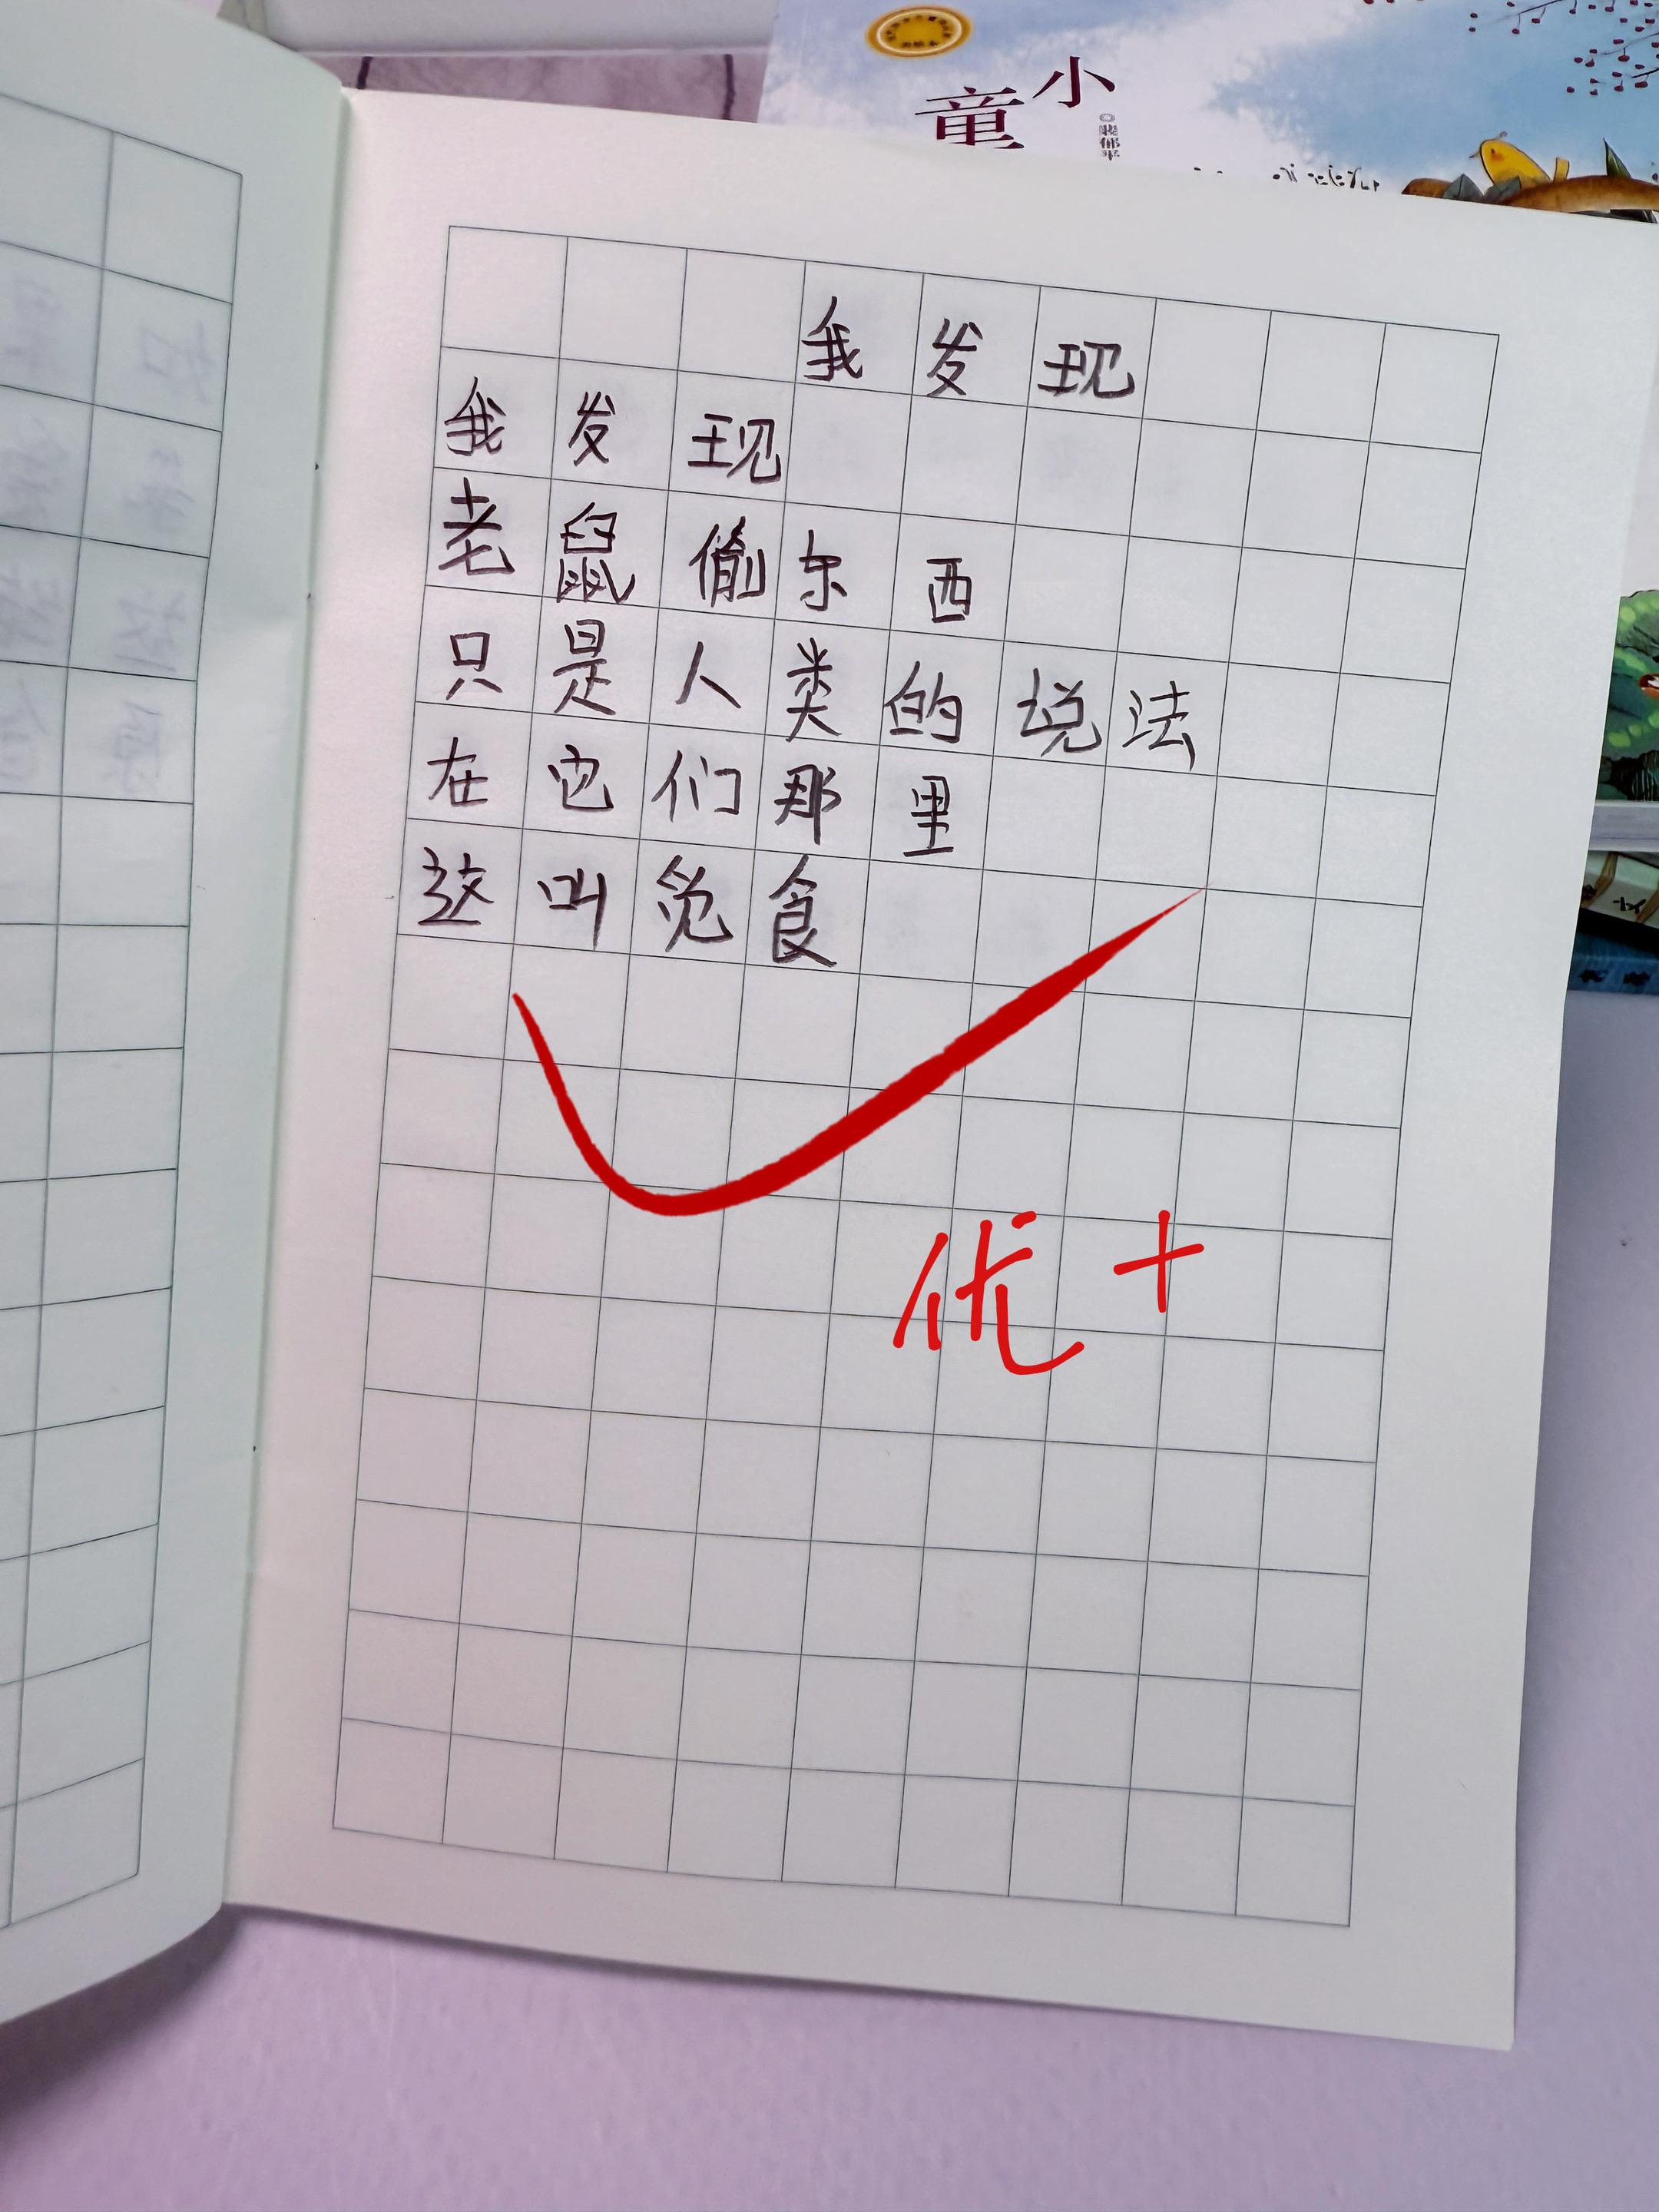 小
童
我发现
我发现
老鼠偷东西
只是人类的说法
在它们那里
这叫觅食
优+